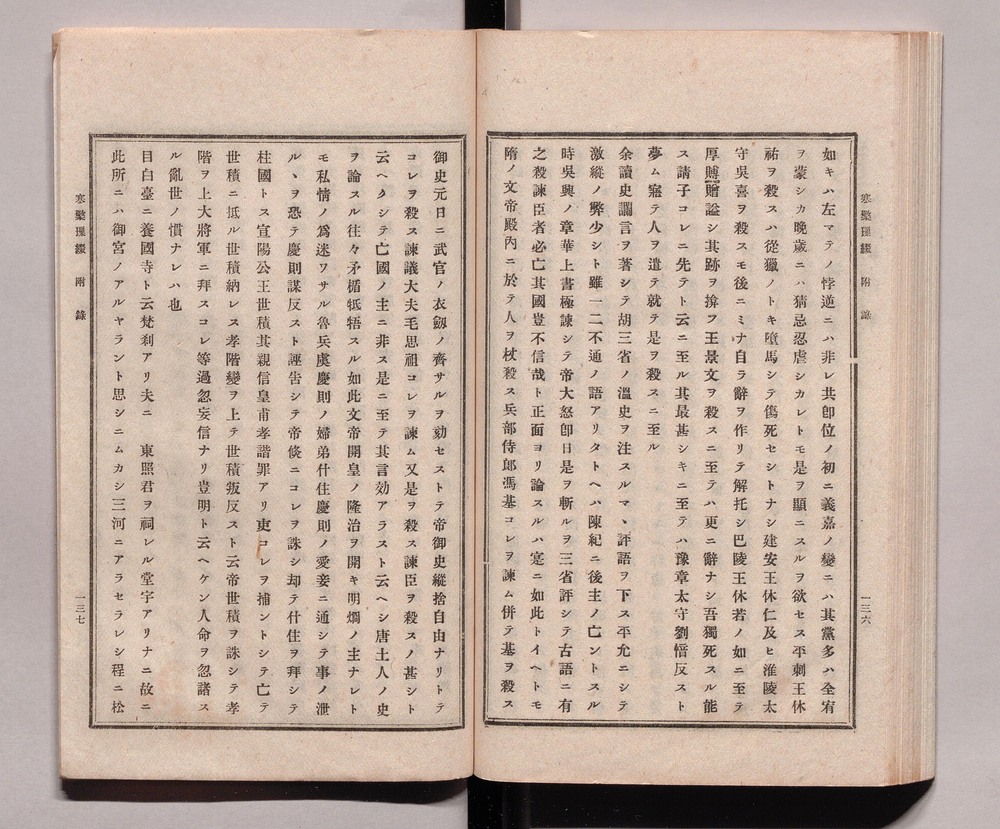 寒檠璅綴　附　錄
一三六
如キハ左マテノ悖道ニハ非レ共卽位ノ初ニ義嘉ノ變ニハ其黨多ハ全宥
ヲ蒙シカ晚歲ニハ猜忌忍虐シカレトモ是ヲ顯ニスルヲ欲セス平刺王休
祐ヲ殺スハ從獵ノトキ墮馬シテ傷死セシトナシ建安王休仁及ヒ淮陵太
守吳喜ヲ殺スモ後ニミナ自ラ辭ヲ作リテ解托シ巴陵王休若ノ如ニ至テ
厚賻贈謚シ其跡ヲ揜フ王景文ヲ殺スニ至テハ更ニ辭ナシ吾獨死スル能
ス請子コレニ先テト云ニ至ル其最甚シキニ至テハ豫章太守劉愔反スト
夢ム寤テ人ヲ遣テ就テ是ヲ殺スニ至ル
余讀史讕言ヲ著シテ胡三省ノ溫史ヲ注スルマヽ評語ヲ下ス平允ニシテ
激縱ノ弊少シト雖一二不通ノ語アリタトヘハ陳紀ニ後主ノ亡ントスル
時吳興ノ章華上書極諫シテ帝大怒卽日是ヲ斬ルヲ三省評シテ古語ニ有
之殺諫臣者必亡其國豈不信哉ト正面ヨリ論スルハ寔ニ如此トイヘトモ
隋ノ文帝殿內ニ於テ人ヲ杖殺ス兵部侍郎馮基コレヲ諫ム併テ基ヲ殺ス
御史元日ニ武官ノ衣劔ノ齊サルヲ劾セストテ帝御史縱捨自由ナリトテ
コレヲ殺ス諫議大夫毛思祖コレヲ諫ム又是ヲ殺ス諫臣ヲ殺スノ甚シト
云ヘクシテ亡國ノ主ニ非ス是ニ至テ其言効アラスト云ヘシ唐土人ノ史
ヲ論スル往々矛楯牴牾スル如此文帝開皇ノ隆治ヲ開キ明燗ノ主ナレト
モ私情ノ爲迷ワサル魯兵虞慶則ノ婦弟什住慶則ノ愛妾ニ通シテ事ノ泄
ルヽヲ恐テ慶則謀反スト誣吿シテ帝倏ニコレヲ誅シ却テ什住ヲ拜シテ
柱國トス宣陽公王世積其親信皇甫孝諧罪アリ吏コレヲ捕ントシテ亡テ
世積ニ抵ル世積納レス孝階變ヲ上テ世積叛反スト云帝世積ヲ誅シテ孝
階ヲ上大將軍ニ拜スコレ等過忽妄信ナリ豈明ト云ヘケン人命ヲ忽諸ス
ル亂世ノ慣ナレハ也
目白臺ニ養國寺ト云梵刹アリ夫ニ　東照君ヲ祠レル堂宇アリナニ故ニ
此所ニハ御宮ノアルヤラント思シニムカシ三河ニアラセラレシ程ニ松
寒檠璅綴　附　錄
一三七